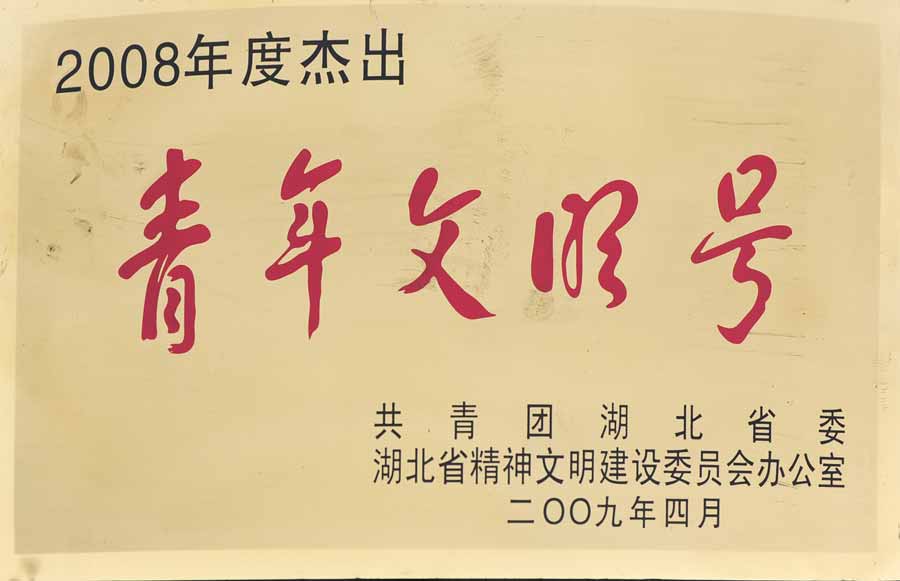 2008年度杰出
青年文明号
共青团湖北省委
湖北省精神文明建设委员会办公室
二〇〇九年四月